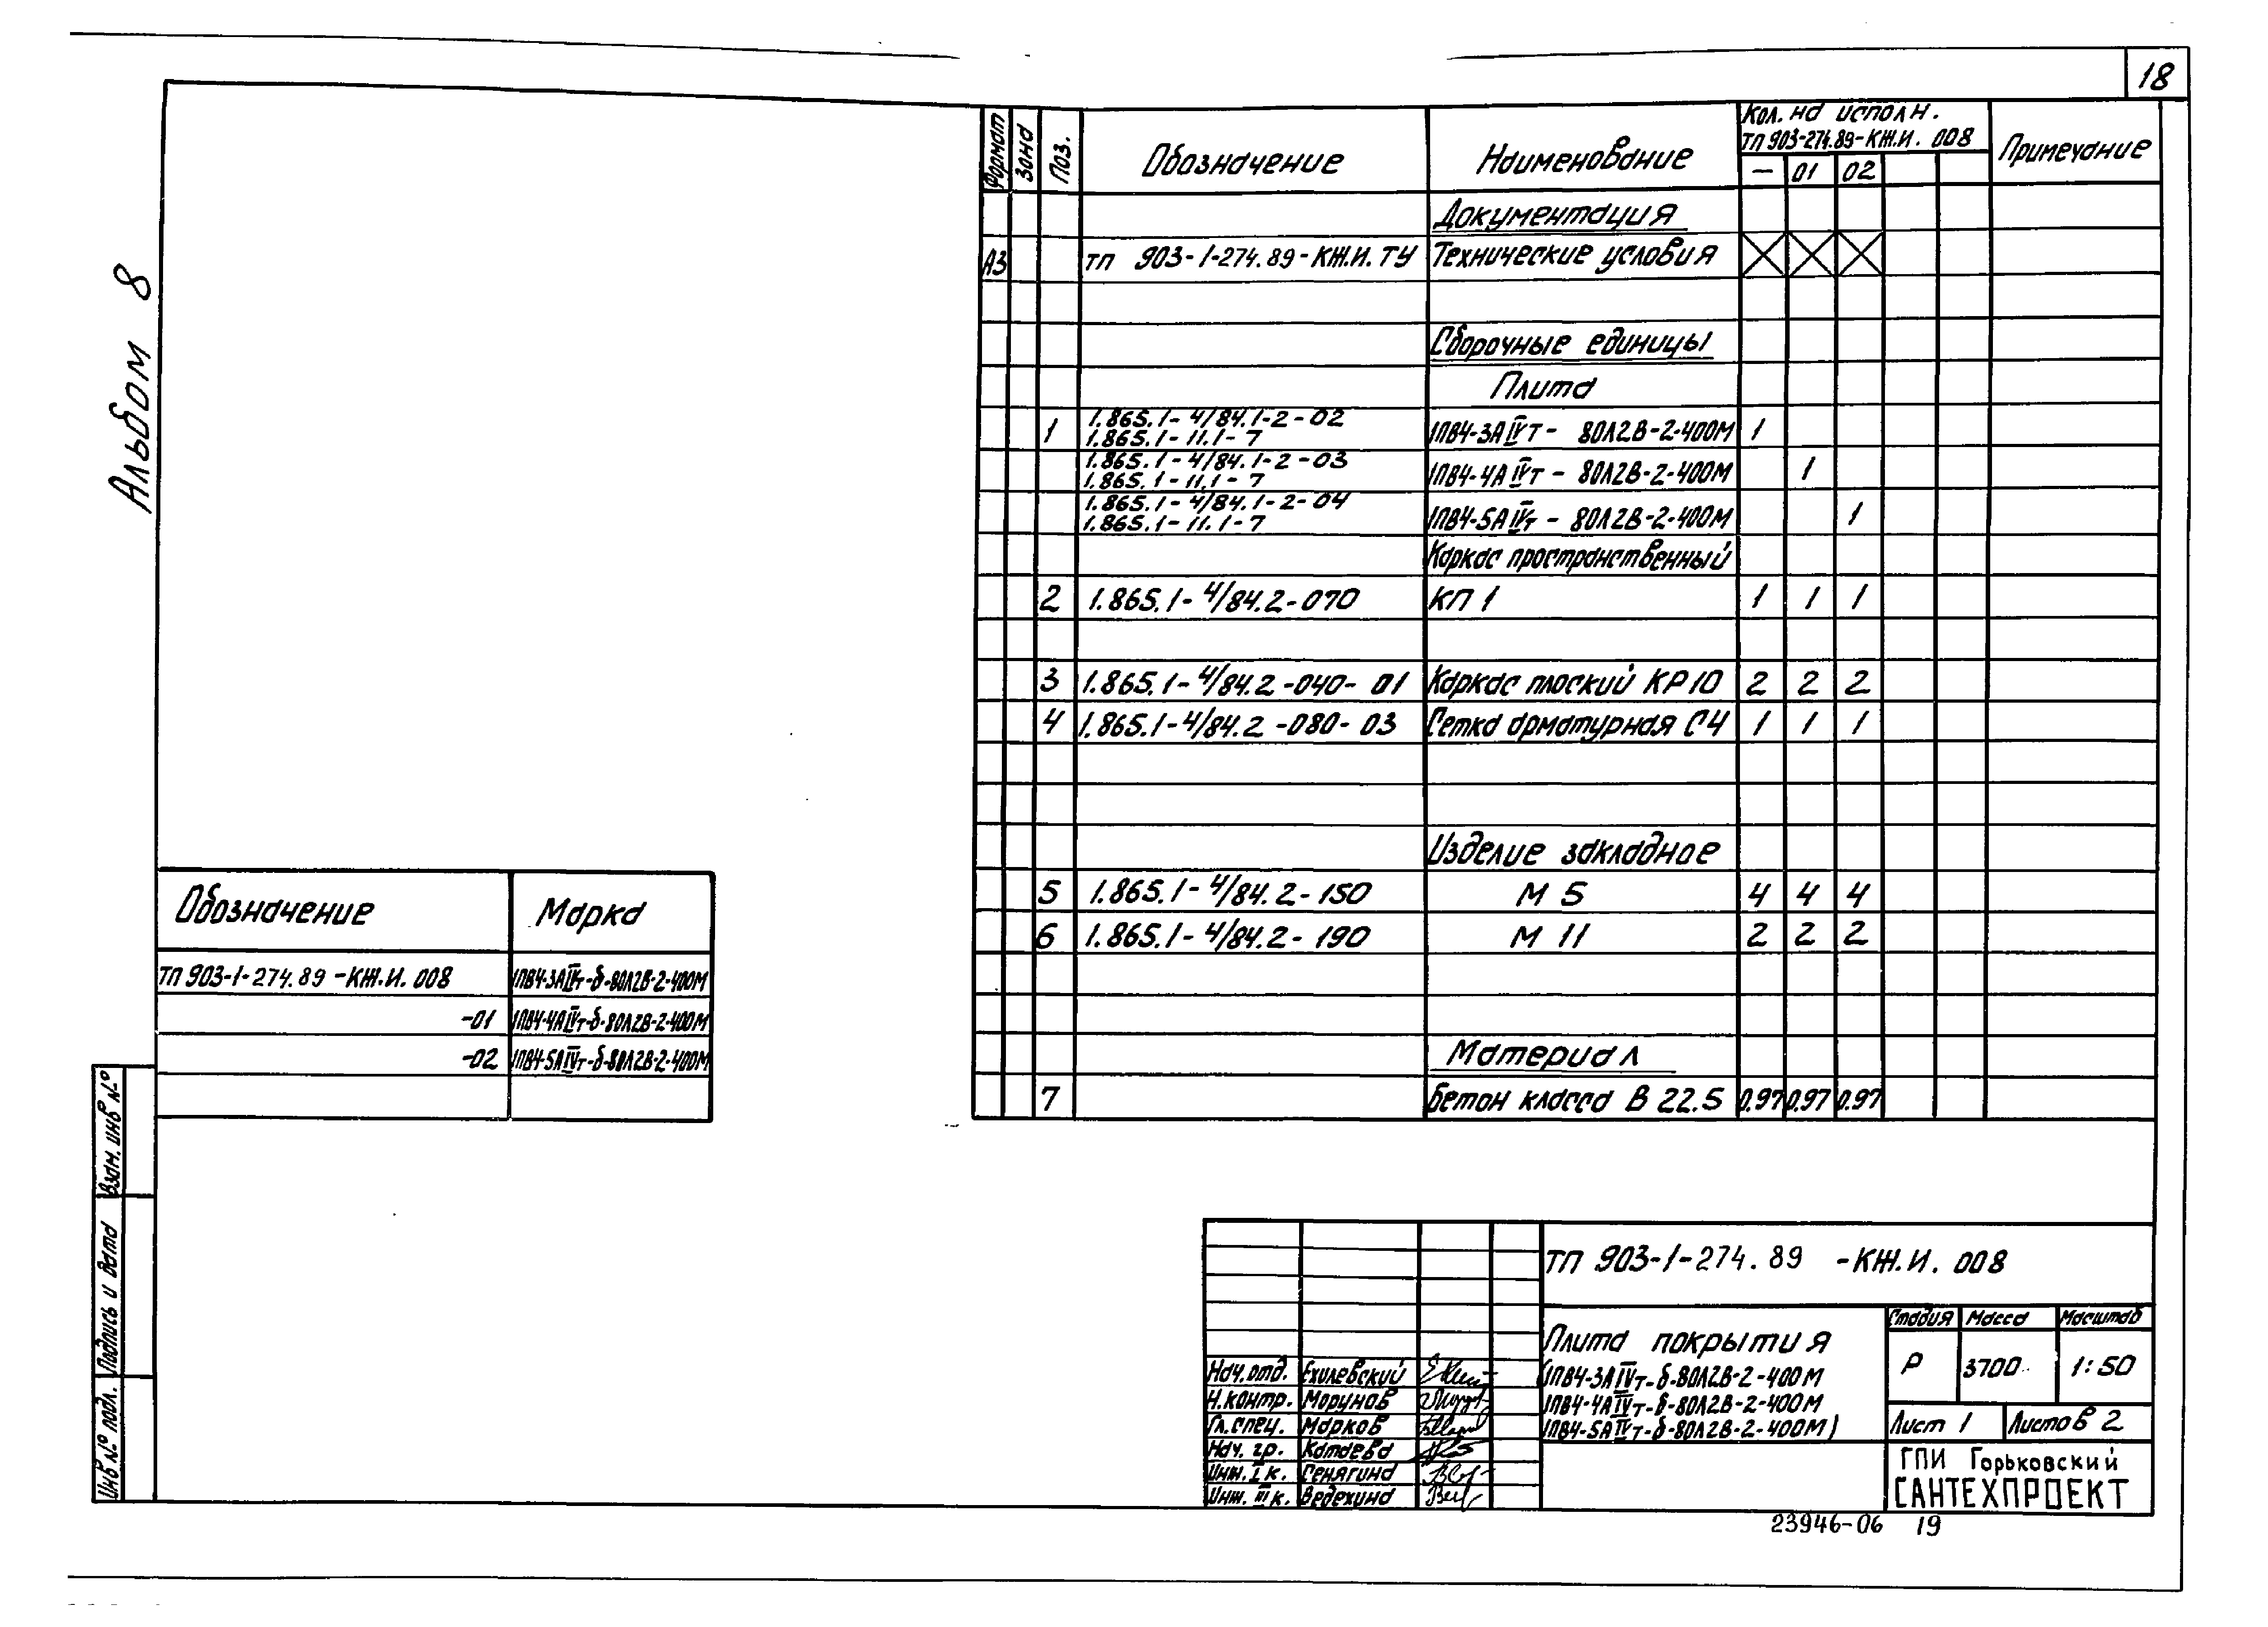 18
Альбом 8
Формат Зона Поз. Обозначение Наименование Кол. на исполн. Примечание
ТП 903-274.89-КЖ.И. 008
— 01 02
Документация
А3 ТП 903-1-274.89-КЖ.И. ТУ Технические условия
Сборочные единицы
Плита
1 1.865.1-4/84.1-2-02
1.865.1-11.1-7 1ПВ4-3АIVт- 80Л2В-2-400М 1
1.865.1-4/84.1-2-03
1.865.1-11.1-7 1ПВ4-4АIVт - 80Л2В-2-400М 1
1.865.1-4/84.1-2-04
1.865.1-11.1-7 1ПВ4-5АIVт - 80Л2В-2-400М 1
Каркас пространственный
2 1.865.1-4/84.2-070 КП 1 1 1 1
3 1.865.1-4/84.2-040-01 Каркас плоский КР10 2 2 2
4 1.865.1-4/84.2-080-03 Сетка арматурная С4 1 1 1
Изделие закладное
5 1.865.1-4/84.2-150 М 5 4 4 4
6 1.865.1-4/84.2-190 М 11 2 2 2
Материал
7 Бетон класса В 22.5 0.97 0.97 0.97
Обозначение Марка
ТП 903-1-274.89-КЖ.И. 008 1ПВ4-3АIVт-б-80Л2В-2-400М
-01 1ПВ4-4АIVт-б-80Л2В-2-400М
-02 1ПВ4-5АIVт-б-80Л2В-2-400М
Взам. инв №
Подпись и дата
Инв № подл.
ТП 903-1-274.89 -КЖ.И. 008
Плита покрытия
(1ПВ4-3АIVт-б-80Л2В-2-400М
1ПВ4-4АIVт-б-80Л2В-2-400М
1ПВ4-5АIVт-б-80Л2В-2-400М)
Стадия Масса Масштаб
Р 3700 1:50
Лист 1 Листов 2
Нач. отд. Ехилевский
Н. контр. Морунов
Гл. спец. Марков
Нач. гр. Катаева
Инж. I к. Сенягина
Инж. III к. Ведехина
ГПИ Горьковский
САНТЕХПРОЕКТ
23946-06 19